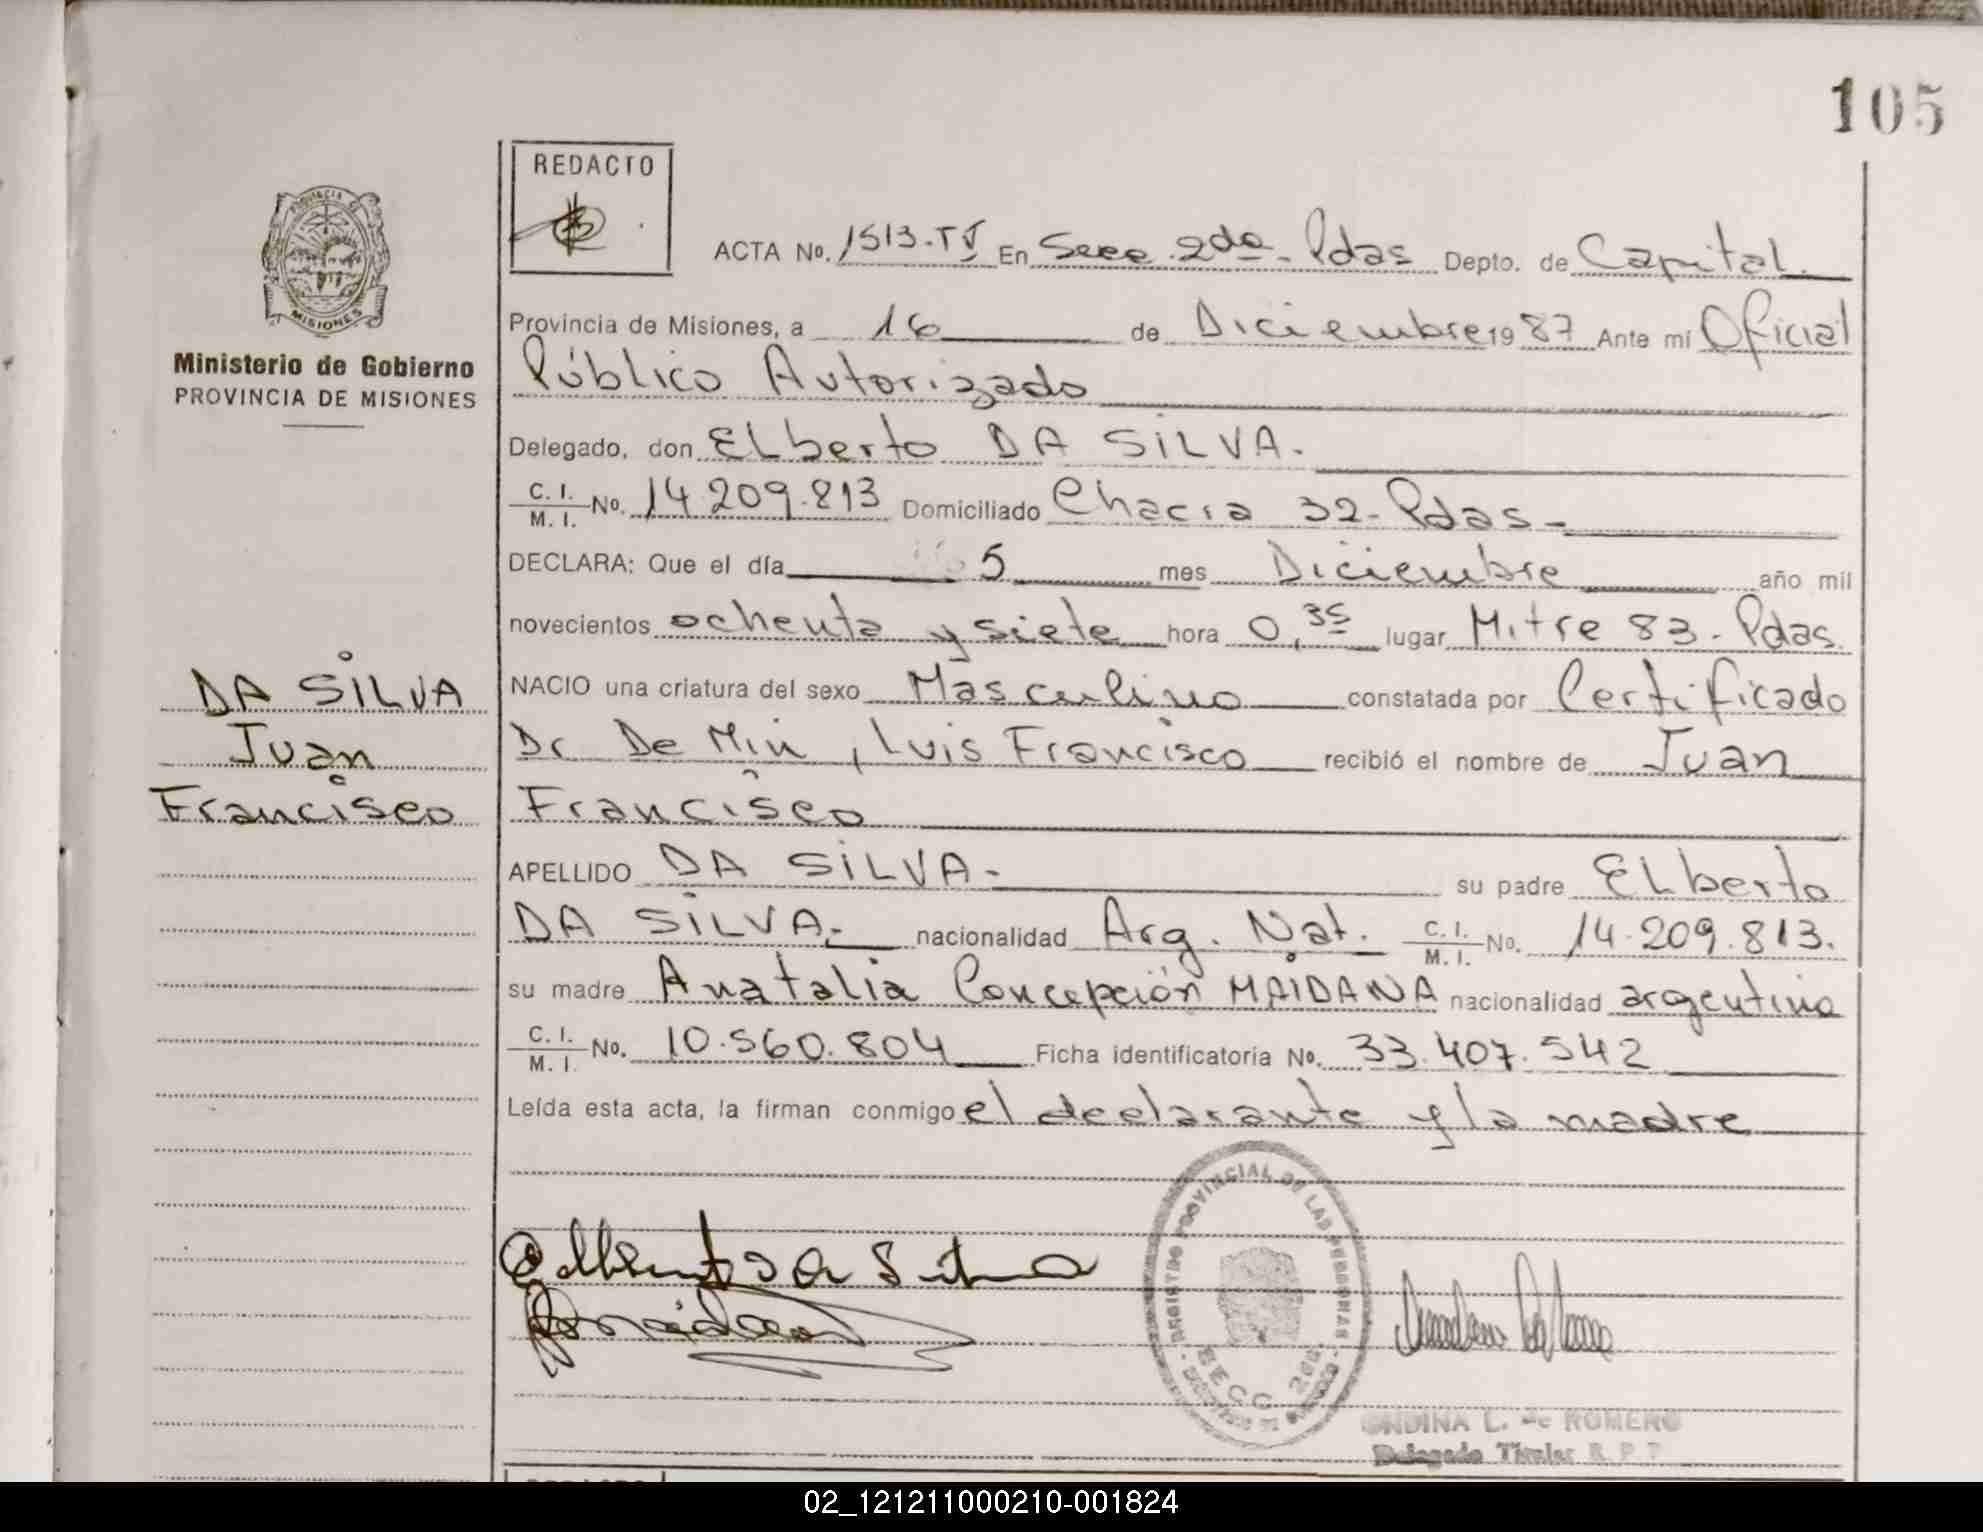 105
REDACTO
PROVINCIA DE
MISIONES
ACTA No. 1513. TV En Secc. 2da - Pdas Depto. de Capital.
Ministerio de Gobierno
PROVINCIA DE MISIONES
Provincia de Misiones, a 16 de Diciembre 1987 Ante mí Oficial
Público Autorizado
Delegado, don ELberto DA SILVA.
C. I. / M. I. No. 14.209.813 Domiciliado Chacra 32 - Pdas -
DECLARA: Que el día 5 mes Diciembre año mil
novecientos ochenta y siete hora 0,35 lugar Mitre 83 - Pdas.
DA SILVA
Juan
Francisco
NACIO una criatura del sexo Masculino constatada por Certificado
Dr De Min, Luis Francisco recibió el nombre de Juan
Francisco
APELLIDO DA SILVA - su padre ELberto
DA SILVA - nacionalidad Arg. Nat. C. I. / M. I. No. 14.209.813.
su madre Anatalia Concepción MAIDANA nacionalidad argentina
C. I. / M. I. No. 10.560.804 Ficha identificatoria No. 33.407.542
Leída esta acta, la firman conmigo el declarante y la madre
REGISTRO PROVINCIAL DE LAS PERSONAS
SECC. 2da
ONDINA L. de ROMERO
Delegado Titular R. P. P.
02_121211000210-001824